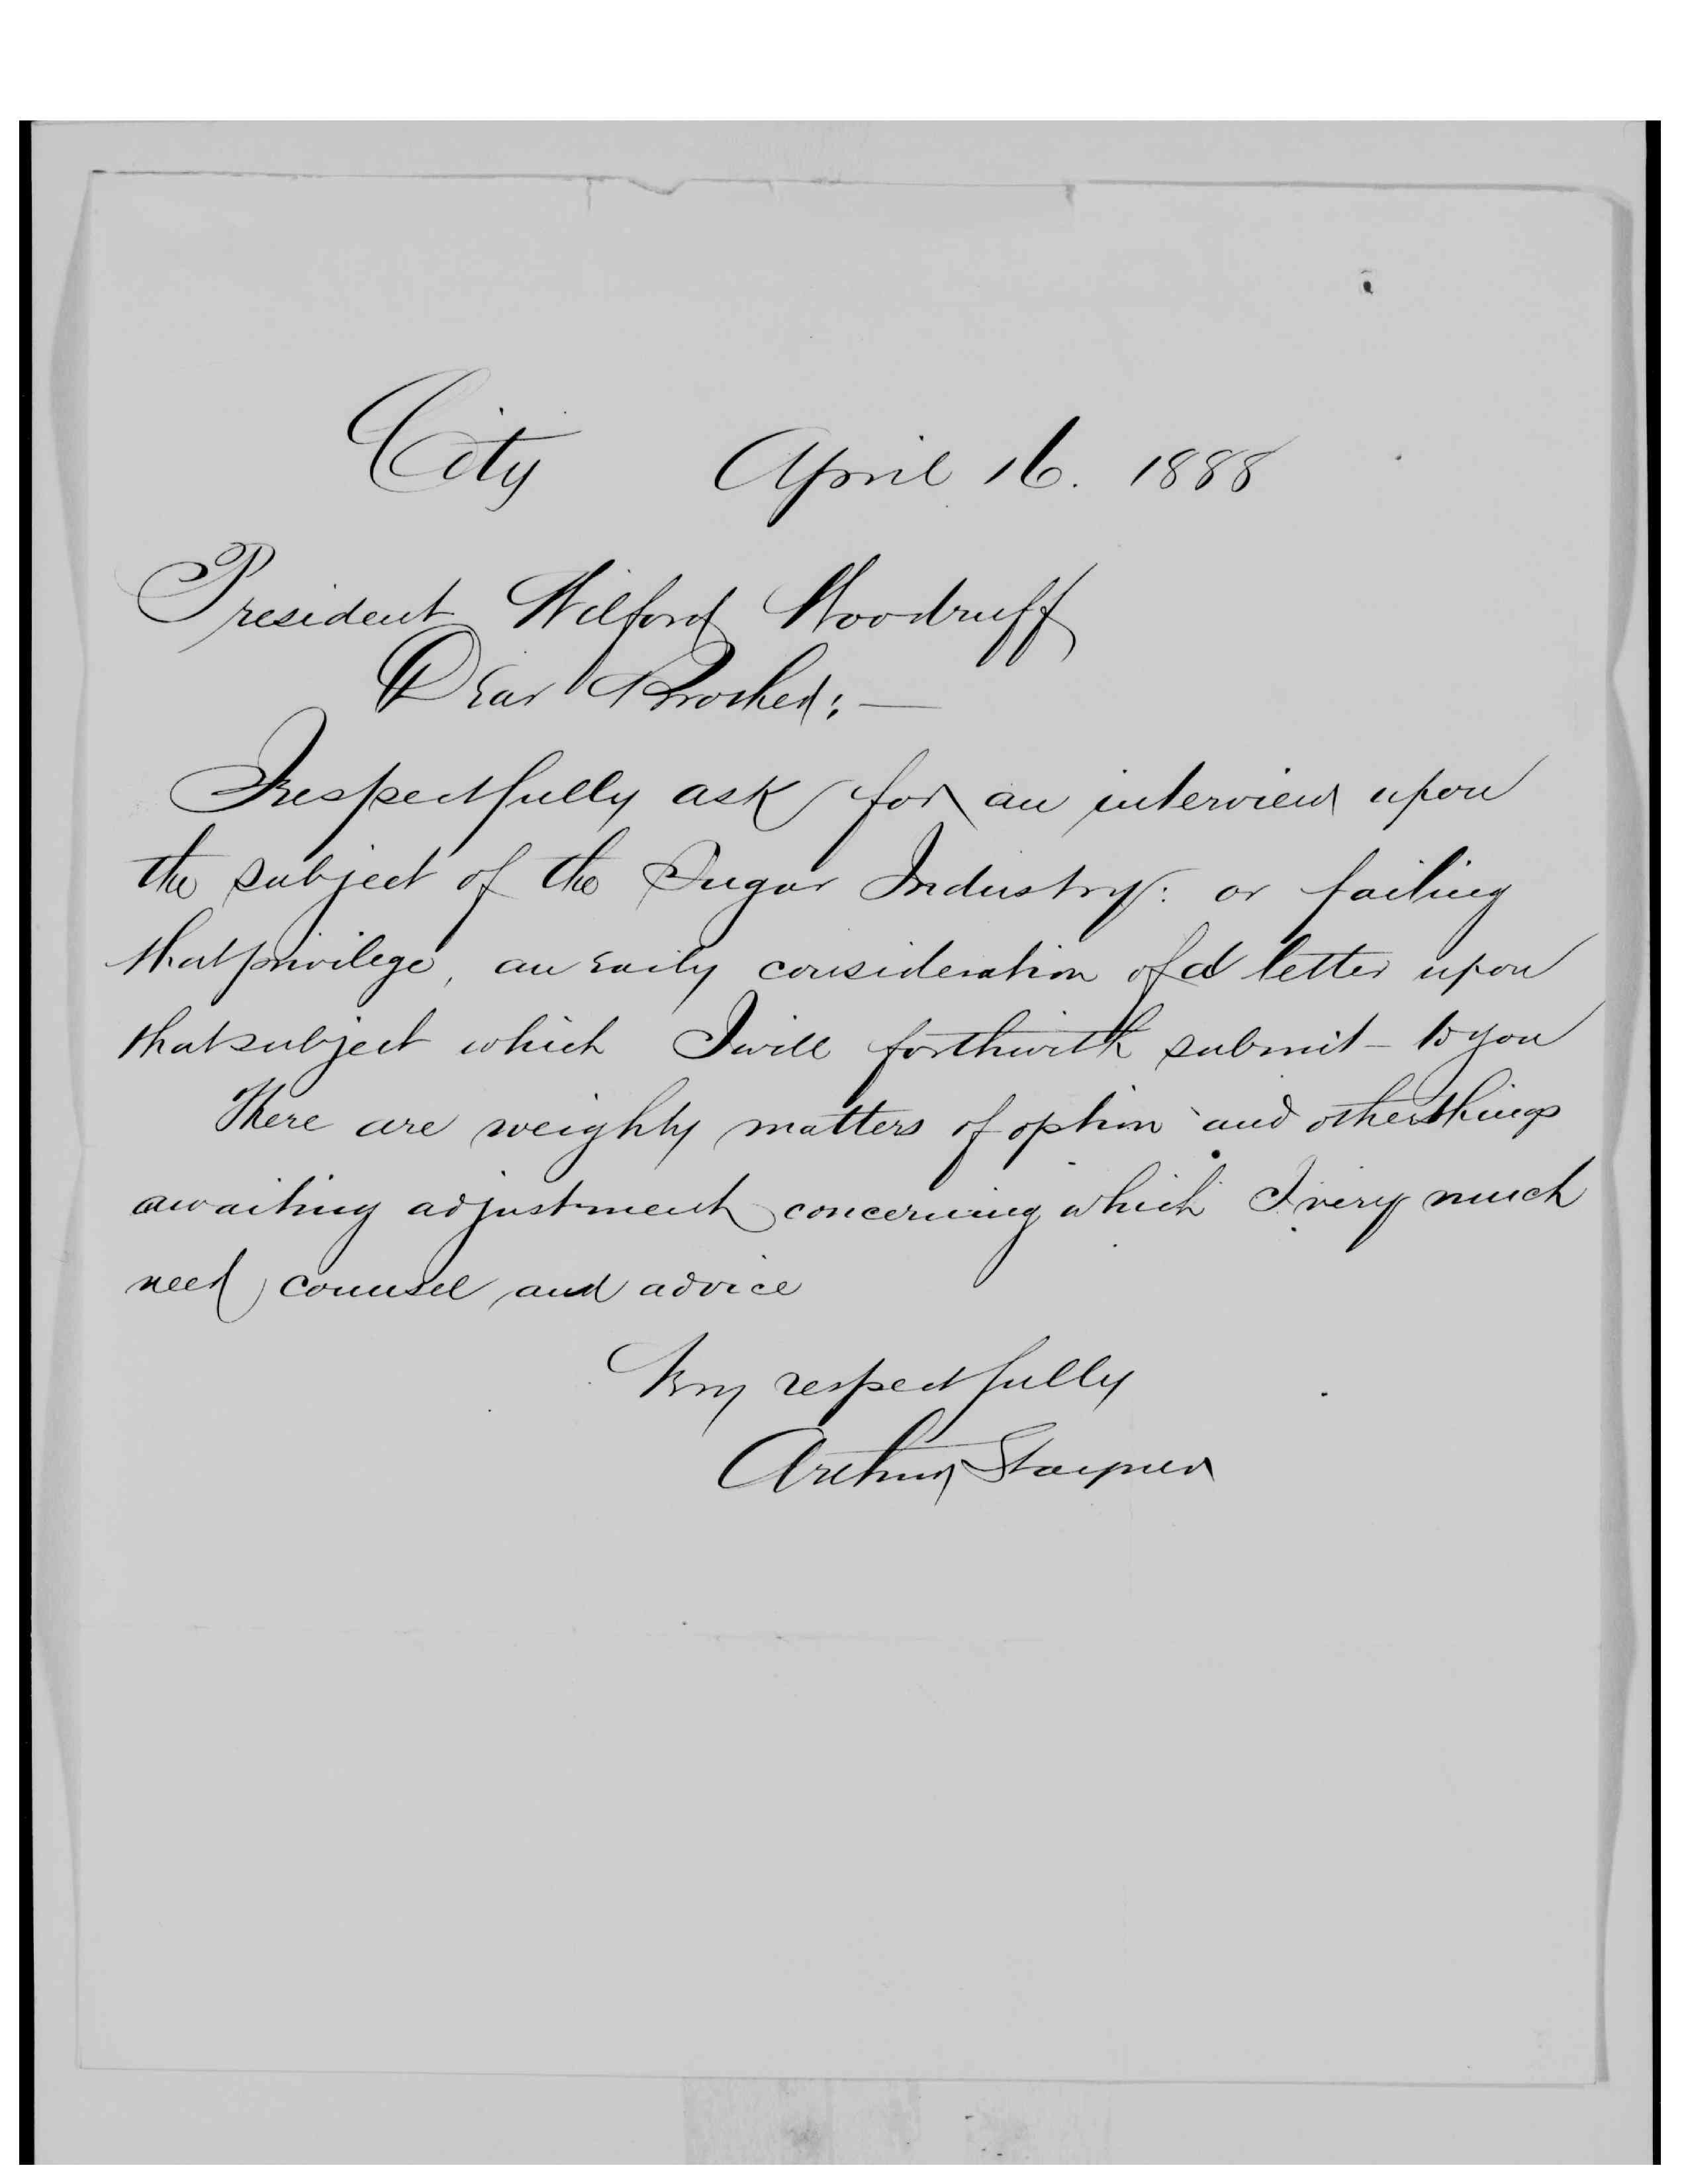 City April 16. 1888
President Wilford Woodruff
Dear Brother:—
I respectfully ask for an interview upon
the subject of the Sugar Industry: or failing
that privilege, an early consideration of a letter upon
that subject which I will forthwith submit to you
There are weighty matters of option and other things
awaiting adjustment concerning which I very much
need counsel and advice
Very respectfully
Arthur Stayner